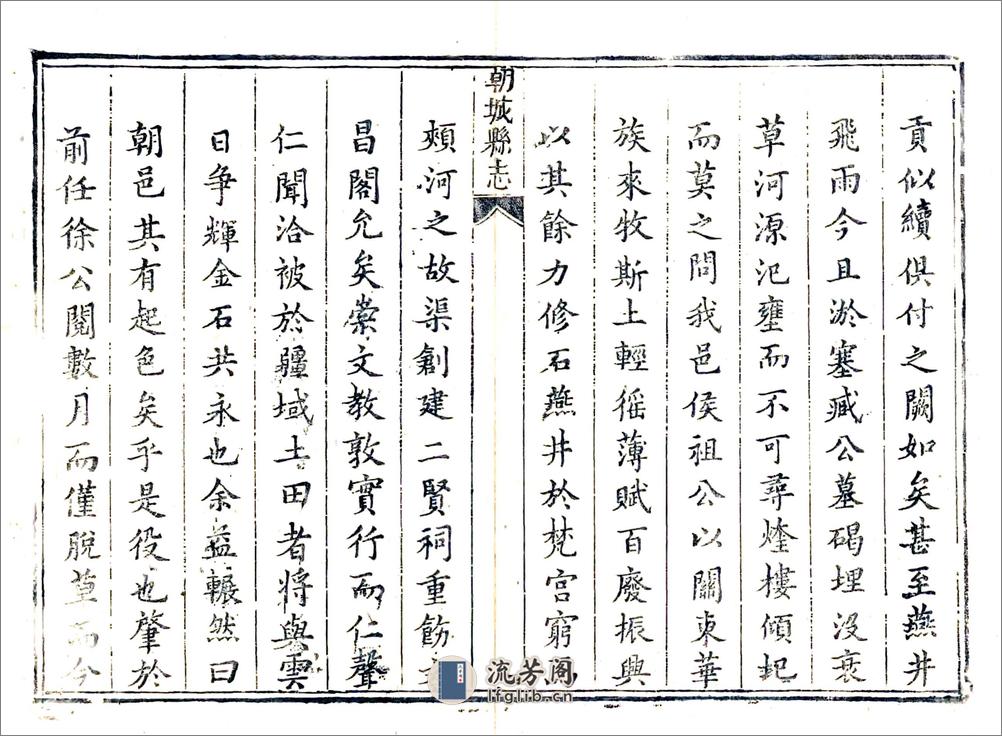 貢似續俱付之闕如矣甚至燕井
飛雨今且淤塞臧公墓碣埋没衰
草河源汜壅而不可尋煙樓傾圯
而莫之問我邑侯祖公以關東華
族來牧斯土輕徭薄賦百廢振興
以其餘力修石燕井於梵宫窮
朝城縣志
頰河之故渠創建二賢祠重飭文
昌閣允矣崇文教敦實行而仁聲
仁聞洽被於疆域土田者將與雲
日争輝金石共永也余益囅然曰
朝邑其有起色矣乎是役也肇於
前任徐公閱數月而僅脱草而今
流芳阁
lfglib.cn